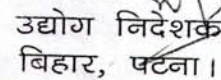 उद्योग निदेशक
बिहार, पटना।